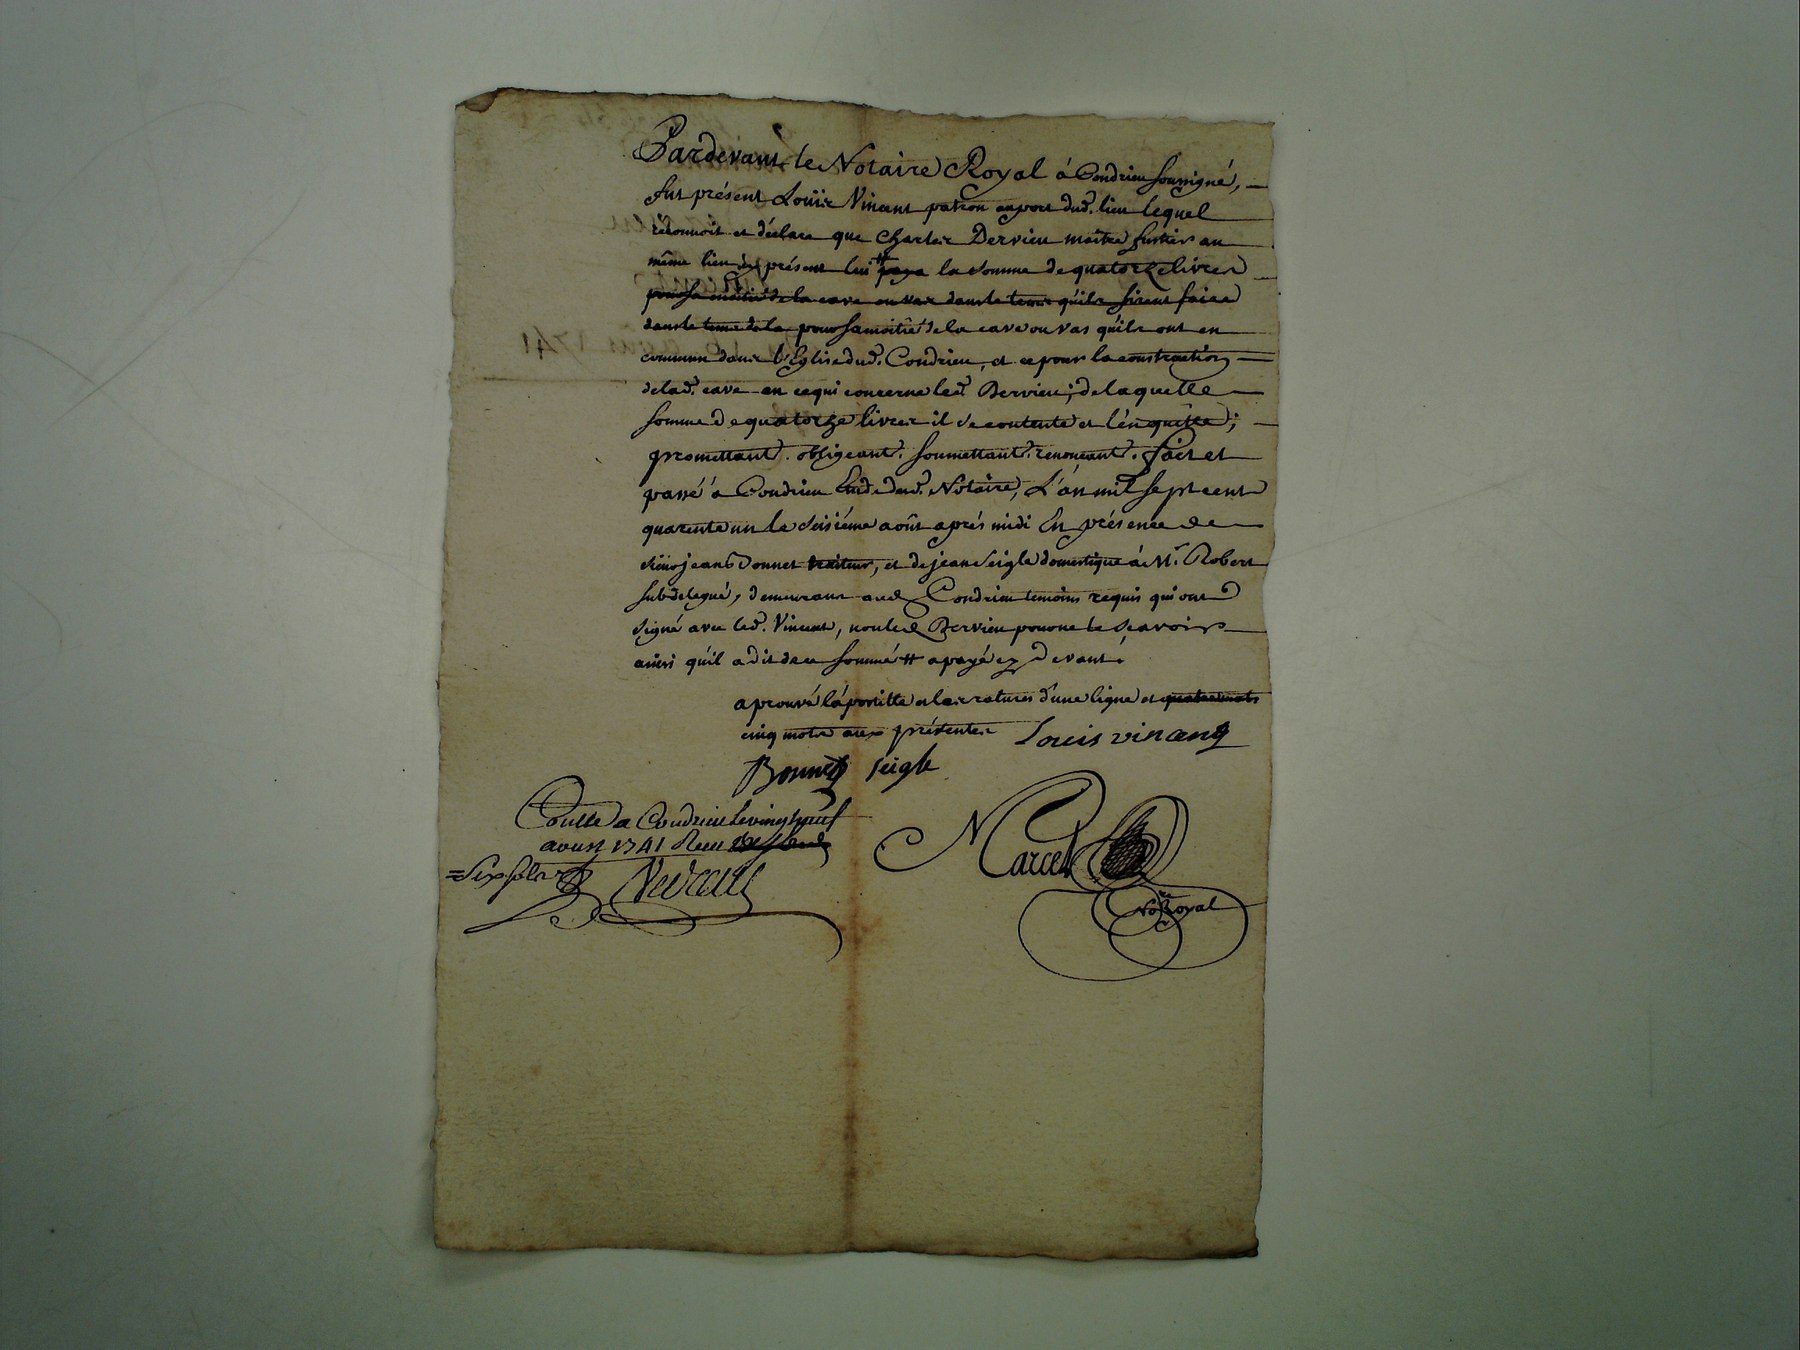 Pardevant le Notaire Royal á Condrieu soussigné,
fut présent Loüis Vincent patron au port dud. lieu lequel
réconnoit et déclare que Charles Dervieu maitre fustier au
même lieu présent lui # paye la somme de quatorze livres
pour sa moitié de la cave ou vas dans le terme qu'ils firent faire
dans le terme de la pour sa moitié de la cave ou vas qu'ils ont en
commun dans l'Eglise dud. Condrieu, et ce pour la construction
de lad. cave en ce qui concerne led. Dervieu; de laquelle
somme de quatorze livres il se contente et l'en quitte;
promettant. obligeant. soumettant. renonceant. fait et
passé á Condrieu Etude dud. Notaire, L'an mil sept cent
quarente un le seisiéme août aprés midi En présence de
sieur jean Bonnet traiteur, et de jean Seigle domestique á Mr. Robert
subdelegué, demeurant aud. Condrieu temoins requis qui ont
signé avec led. Vincent, non led. Dervieu pour ne le sçavoir
ainsi qu'il a dit de ce sommé # a payé cy devant.
aprouvé l'apostille et les ratures d'une ligne et quatre mots
cinq mots aux présentes Louis vincent
Bonnet Seigle
Conllé a Condrieu le vingt neuf
aoust 1741 Reçu
= Six sols
Marcel
Nore Royal